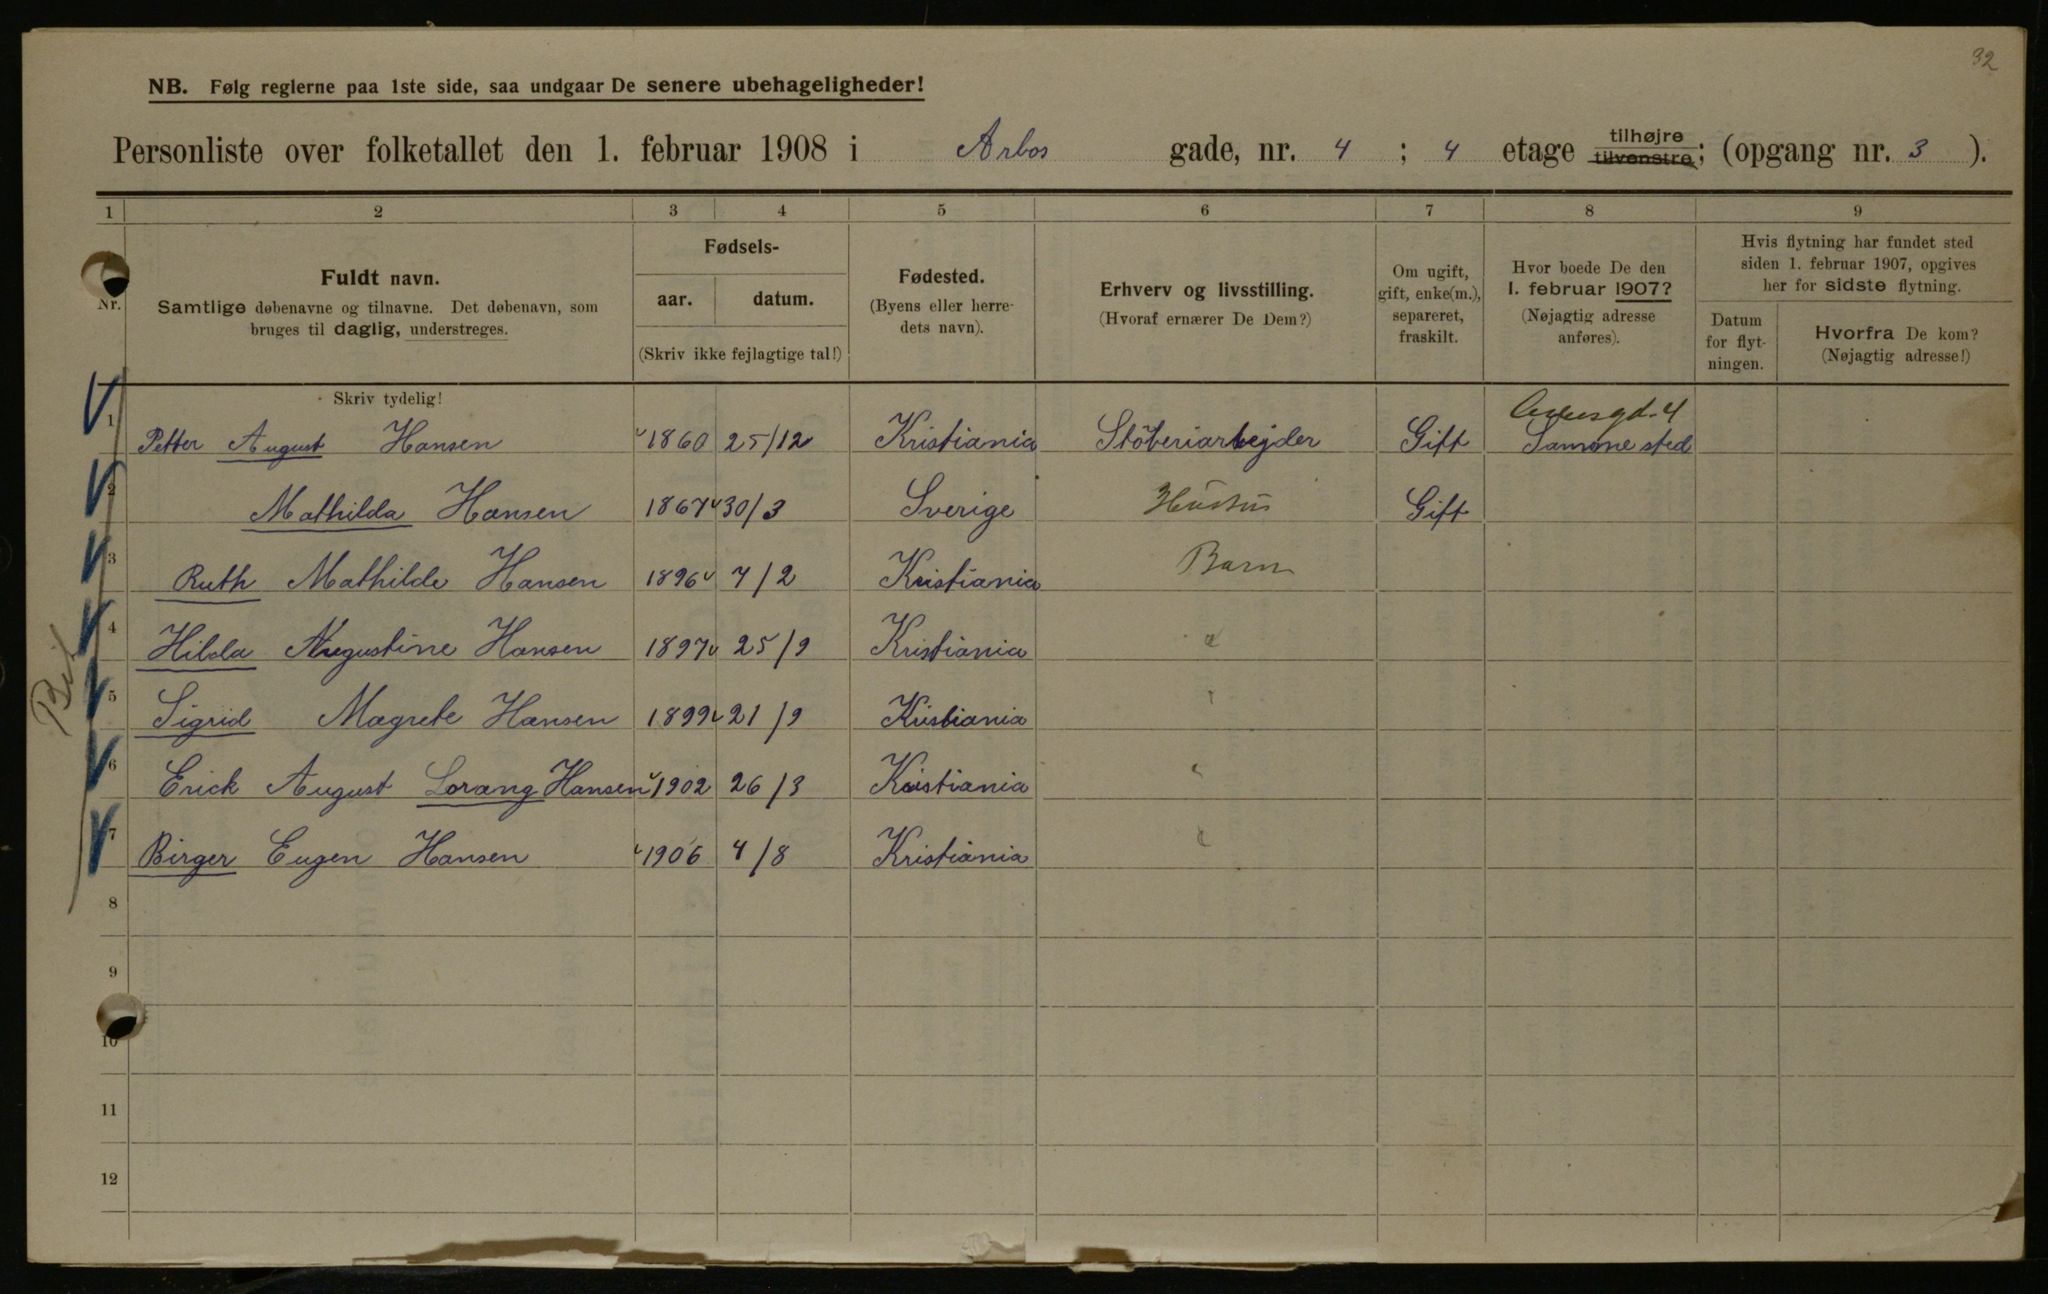 32
NB. Følg reglerne paa 1ste side, saa undgaar De senere ubehageligheder!
Personliste over folketallet den 1. februar 1908 i Arbos gade, nr. 4 ; 4 etage tilhøjre tilvenstre; (opgang nr. 3 ).
1 2 3 4 5 6 7 8 9
Nr.
Fuldt navn.
Samtlige døbenavne og tilnavne. Det døbenavn, som
bruges til daglig, understreges.
Fødsels-
aar. datum.
(Skriv ikke fejlagtige tal!)
Fødested.
(Byens eller herre-
dets navn).
Erhverv og livsstilling.
(Hvoraf ernærer De Dem?)
Om ugift,
gift, enke(m.),
separeret,
fraskilt.
Hvor boede De den
1. februar 1907?
(Nøjagtig adresse
anføres).
Hvis flytning har fundet sted
siden 1. februar 1907, opgives
her for sidste flytning.
Datum
for flyt-
ningen.
Hvorfra De kom?
(Nøjagtig adresse!)
Skriv tydelig!
gd. 4
1 Petter August Hansen 1860 25/12 Kristiania Stöberiarbejder Gift Samme sted
2 Mathilda Hansen 1867 30/3 Sverige Hustru Gift
3 Ruth Mathilde Hansen 1896 7/2 Kristiania Barn
4 Hilda Augustine Hansen 1897 25/9 Kristiania
5 Sigrid Magrete Hansen 1899 21/9 Kristiania
6 Erick August Lorang Hansen 1902 26/3 Kristiania
7 Birger Eugen Hansen 1906 4/8 Kristiania
8
9
10
11
12